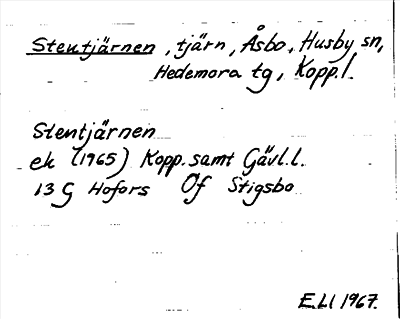 Stentjärnen, tjärn, Åsbo, Husby sn,
Hedemora tg, Kopp.l.
Stentjärnen
ek (1965) Kopp. samt Gävl.l.
13 G Hofors Öf Stigsbo
E.Ll 1967.